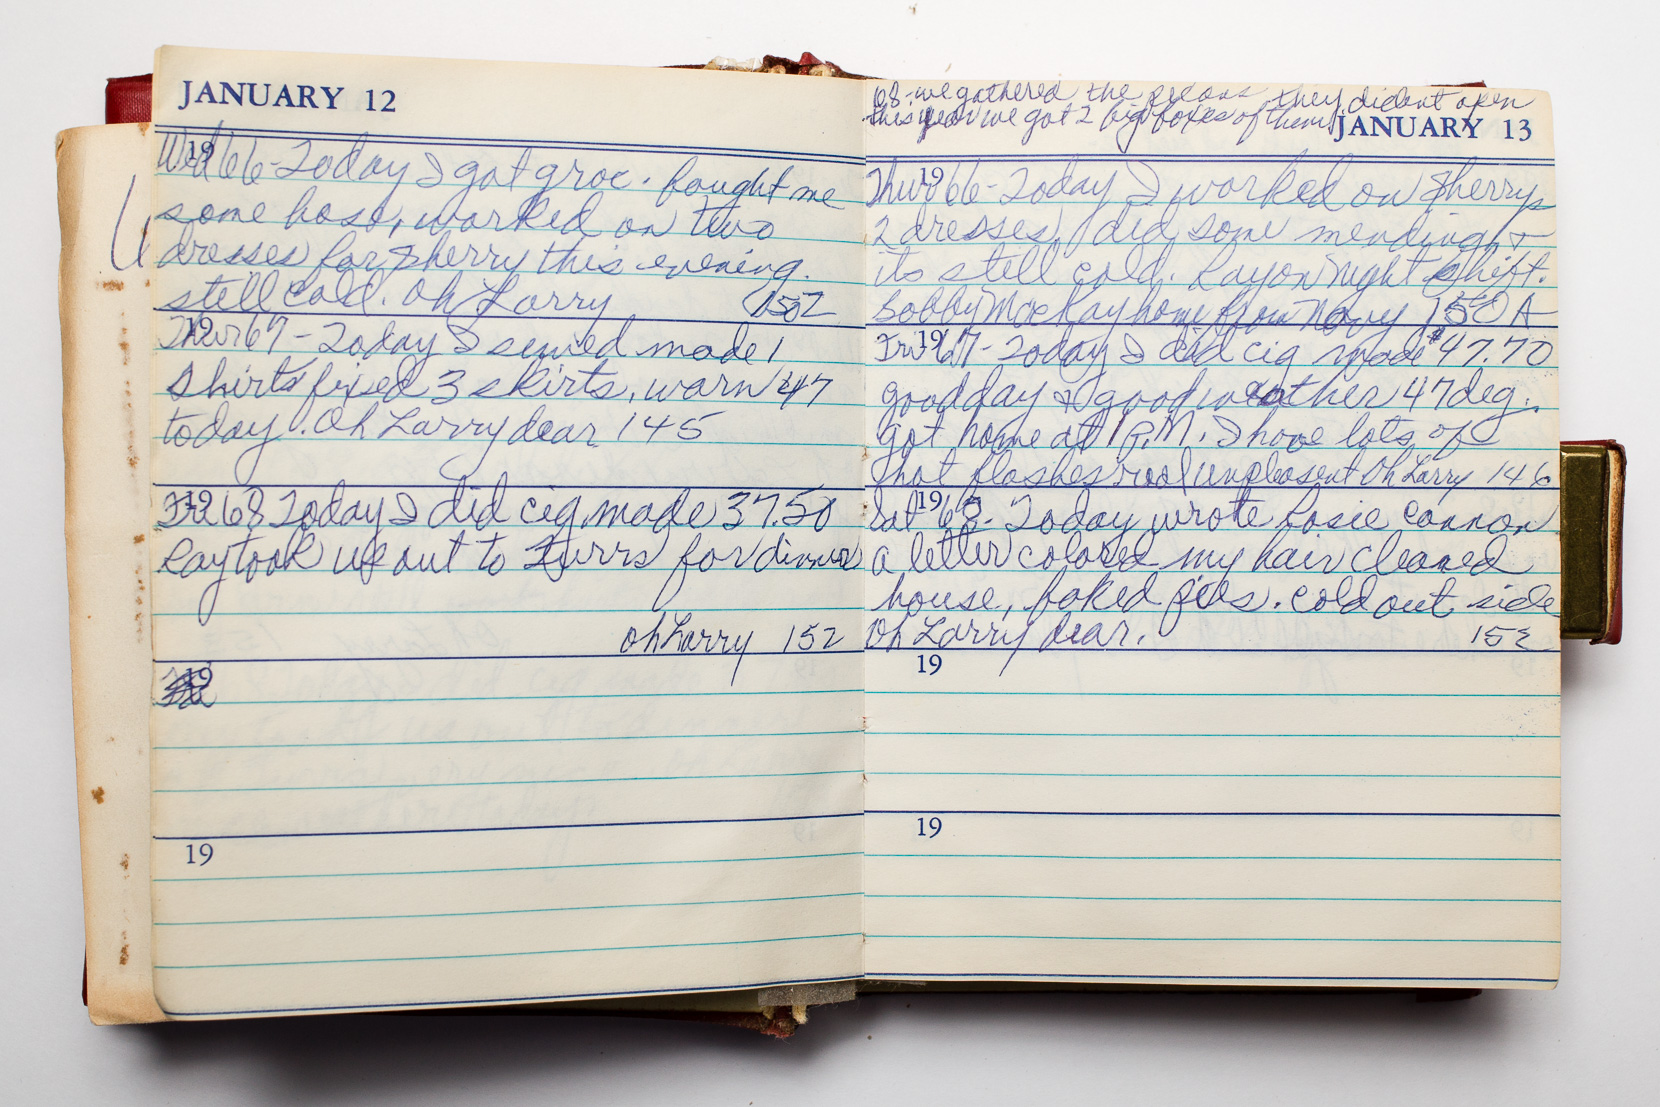 JANUARY 12
19
Wed 66 - Today I got groc. bought me
some hose, worked on two
dresses for Sherry this evening.
still cold. Oh Larry 152
19
Thur 67 - Today I sewed made 1
shirts fixed 3 skirts, warm 47
today. Oh Larry dear 145
19
Fri 68 Today I did cig made 37.50
Ray took us out to Furrs for dinner
Oh Larry 152
19
19
68 - we gathered the pecans they dident open
this year we got 2 big boxes of them
JANUARY 13
19
Thur 66 - Today I worked on Sherrys
2 dresses, did some mending &
its still cold. Ray on night shift.
Bobby Mac Kay home from Navy 150 A
19
Fri 67 - Today I did cig made $47.70
good day & good weather 47 deg.
got home at 1 P.M. I have lots of
hot flashes real unpleasent Oh Larry 146
19
Sat 68 - Today wrote Rosie Cannon
a letter colored my hair cleaned
house, baked pies. cold out side
Oh Larry dear. 152
19
19